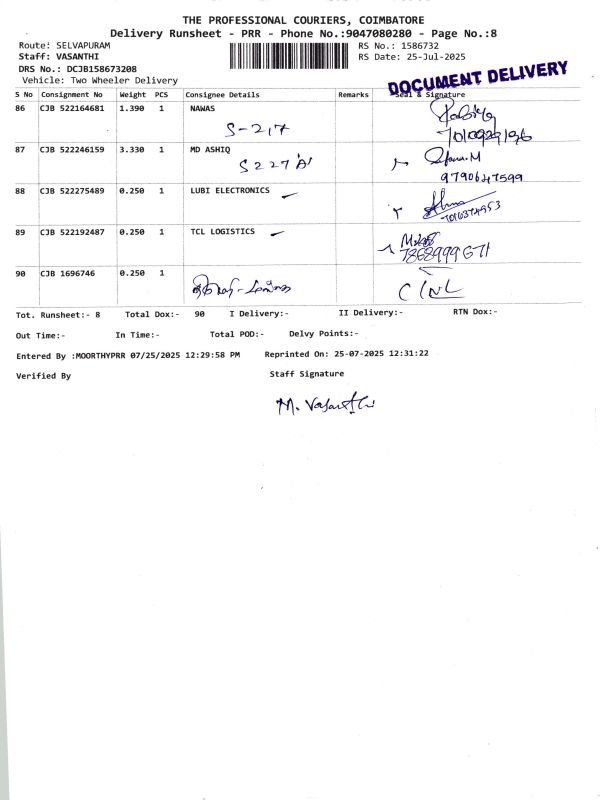 THE PROFESSIONAL COURIERS, COIMBATORE
Delivery Runsheet - PRR - Phone No.:9047080280 - Page No.:8
Route: SELVAPURAM
RS No.: 1586732
Staff: VASANTHI
RS Date: 25-Jul-2025
DRS No.: DCJB158673208
Vehicle: Two Wheeler Delivery
DOCUMENT DELIVERY
S No Consignment No Weight PCS Consignee Details Remarks Seal & Signature
86 CJB 522164681 1.390 1 NAWAS
S-217
87 CJB 522246159 3.330 1 MD ASHIQ
S 227 'A'
9790647599
88 CJB 522275489 0.250 1 LUBI ELECTRONICS
89 CJB 522192487 0.250 1 TCL LOGISTICS
90 CJB 1696746 0.250 1
Tot. Runsheet:- 8 Total Dox:- 90 I Delivery:- II Delivery:- RTN Dox:-
Out Time:- In Time:- Total POD:- Delvy Points:-
Entered By :MOORTHYPRR 07/25/2025 12:29:58 PM Reprinted On: 25-07-2025 12:31:22
Verified By Staff Signature
M. Vasanthi